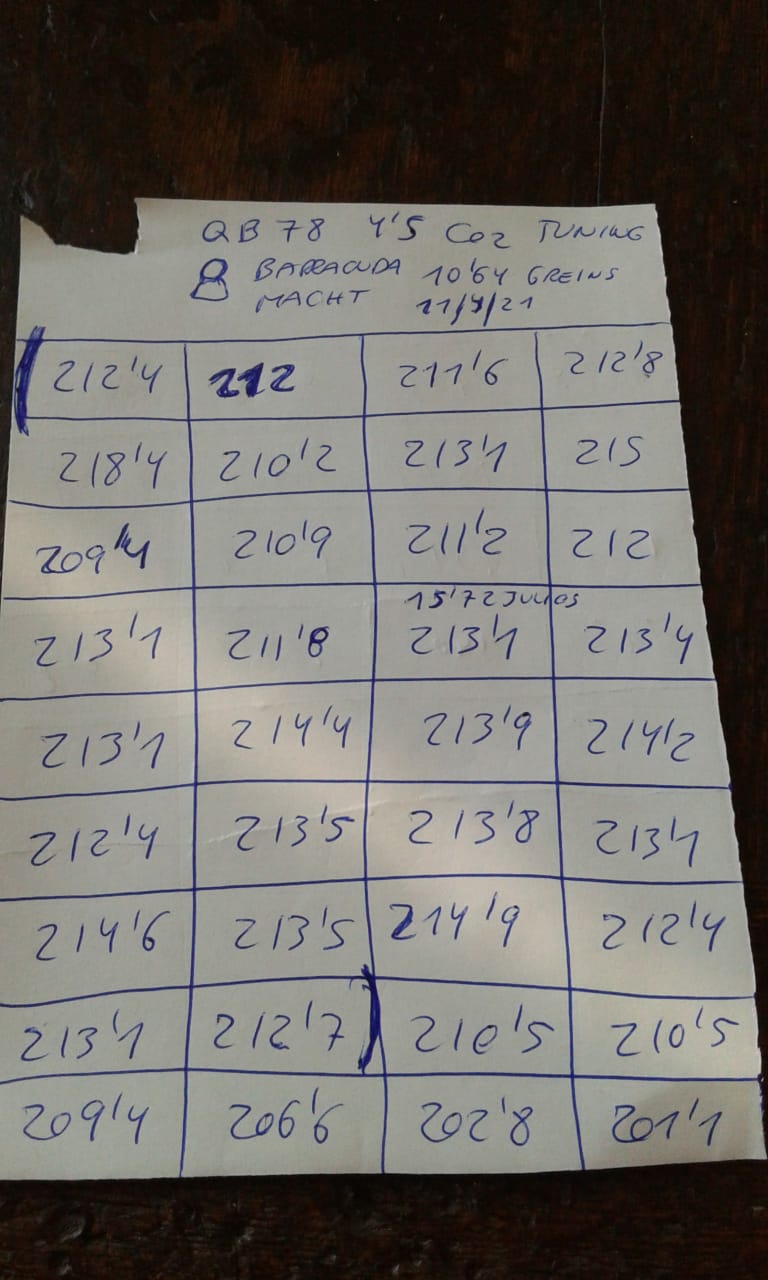 QB 78 4'5 Co2 TUNING
BARRACUDA 10'64 GREINS
MACHT 11/7/21
212'4 212 211'6 212'8
218'4 210'2 213'1 215
209'4 210'9 211'2 212
15'72 JULIOS
213'1 211'8 213'1 213'4
213'1 214'4 213'9 214'2
212'4 213'5 213'8 213'1
214'6 213'5 214'9 212'4
213'1 212'7 210'5 210'5
209'4 206'6 202'8 201'1